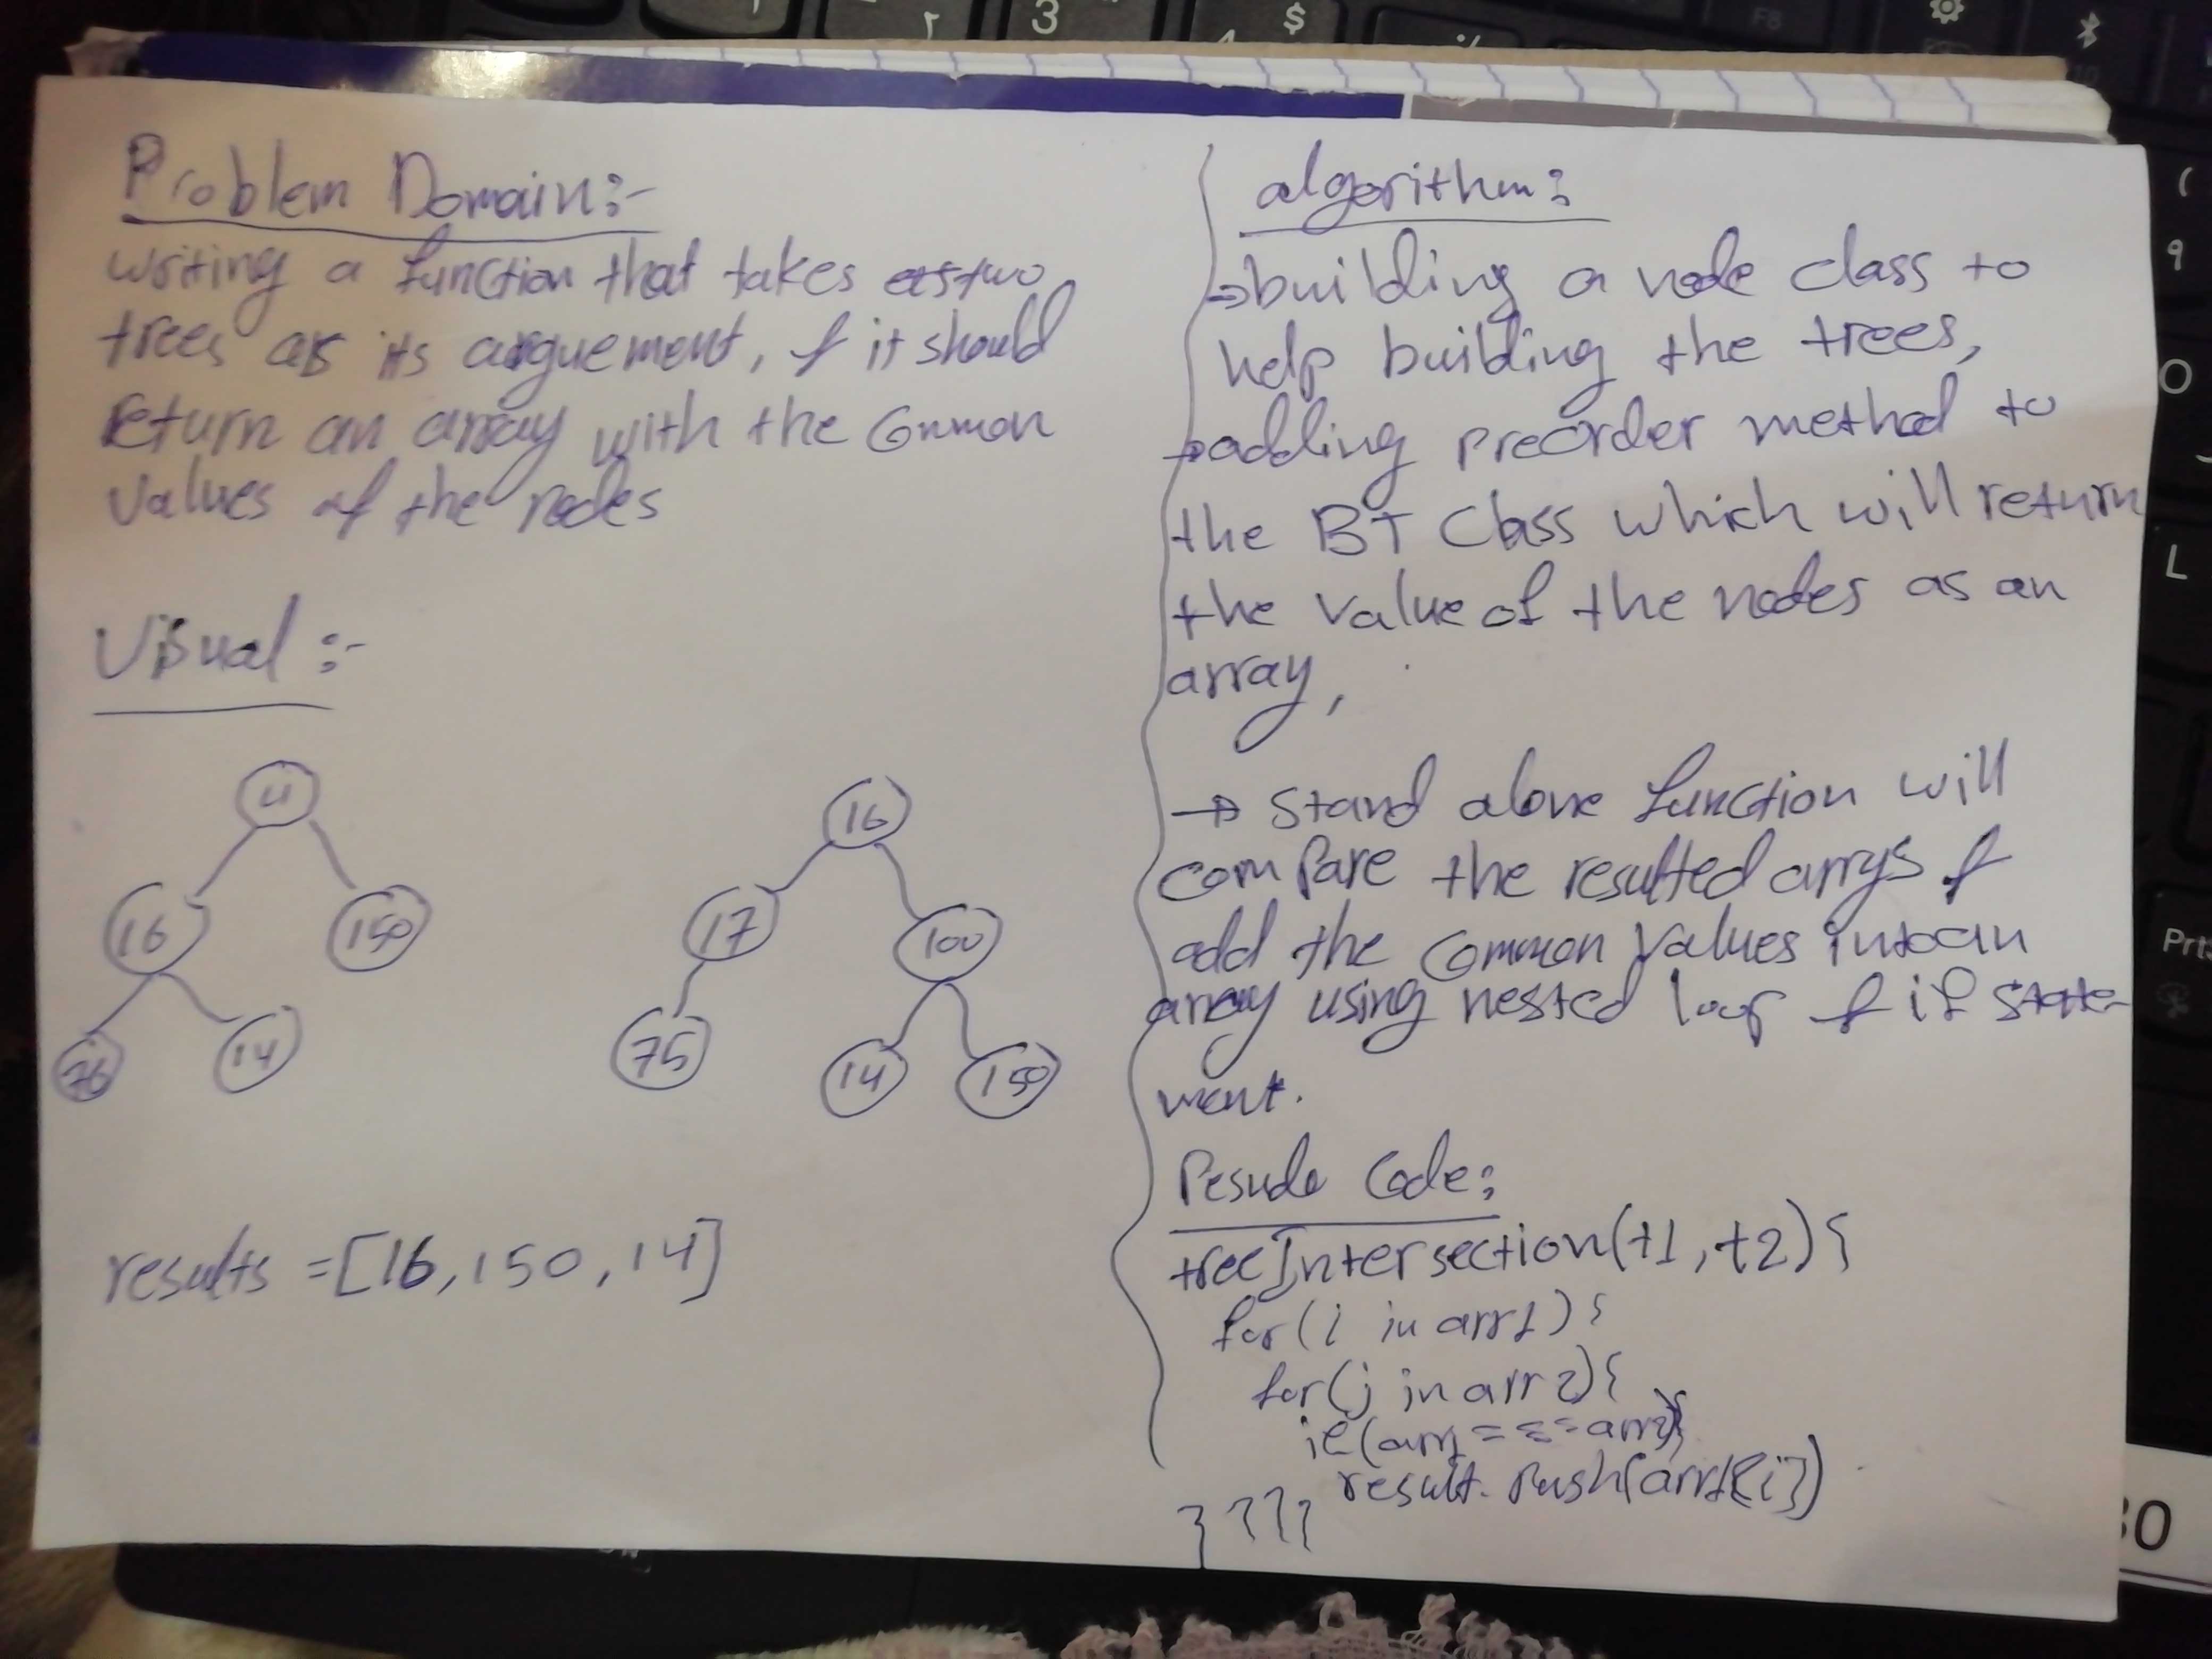 Problem Domain:-
writing a function that takes two
trees as its arguement, & it should
return an array with the Common
Values of the nodes
Visual :-
4
16
150
76
14
16
17
100
75
14
150
results = [16, 150, 14]
algorithm:
→ building a node class to
help building the trees,
→ adding preorder method to
the BT Class which will return
the value of the nodes as an
array,
→ stand alone function will
compare the resulted arrys &
add the Common Values into an
array using nested loop & if state-
ment.
Pesudo Code:
treeIntersection(t1, t2){
for(i in arr1){
for(j in arr2){
if(arr1 === arr2){
result.push(arr1[i])
}}}}
3
$
F8
(
9
O
L
Prt
30